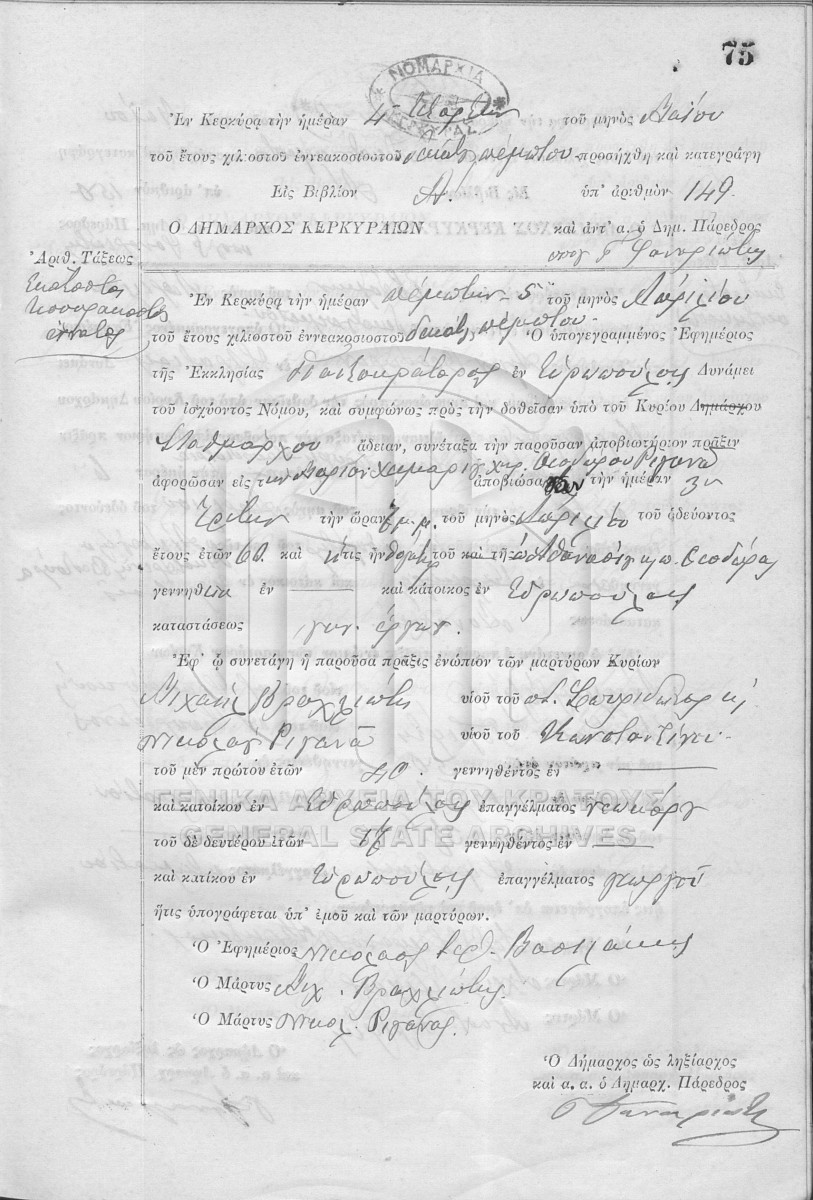 75
ΝΟΜΑΡΧΙΑ
ΚΕΡΚΥΡΑΣ
Ἐν Κερκύρᾳ τὴν ἡμέραν 4ην Τετάρτην τοῦ μηνὸς Μαΐου
τοῦ ἔτους χιλιοστοῦ ἐννεακοσιοστοῦ δεκάτου πέμπτου προσήχθη καὶ κατεγράφη
Εἰς Βιβλίον Α. ὑπ' ἀριθμὸν 149
Ο ΔΗΜΑΡΧΟΣ ΚΕΡΚΥΡΑΙΩΝ καὶ ἀντ' α. ὁ Δημ. Πάρεδρος
Ἀριθ. Τάξεως
Ἑκατοστὸς
τεσσαρακοστὸς
ἔννατος
Ἐν Κερκύρᾳ τὴν ἡμέραν πέμπτην 5 τοῦ μηνὸς Ἀπριλίου
τοῦ ἔτους χιλιοστοῦ ἐννεακοσιοστοῦ δεκάτου πέμπτου Ὁ ὑπογεγραμμένος Ἐφημέριος
τῆς Ἐκκλησίας Παντοκράτορος ἐν Εὐρωπούλοις Δυνάμει
τοῦ ἰσχύοντος Νόμου, καὶ συμφώνως πρὸς τὴν δοθεῖσαν ὑπὸ τοῦ Κυρίου Δημάρχου
Σταθμάρχου ἄδειαν, συνέταξα τὴν παροῦσαν ἀποβιωτήριον πρᾶξιν
ἀφορῶσαν εἰς τὴν χηρ. Θεοδώρου Ριγανᾶ
ἀποβιώσασαν τὴν ἡμέραν 3ην
Τρίτην τὴν ὥραν 7 μ.μ. τοῦ μηνὸς Ἀπριλίου τοῦ ὁδεύοντος
ἔτους ἐτῶν 60. καὶ ἥτις ἦν θυγάτηρ τοῦ καὶ τῆς ποτ. Ἀθανασίου κ. π. Θεοδώρας
γεννηθεῖσα ἐν — καὶ κάτοικος ἐν Εὐρωπούλοις
καταστάσεως γυν. ἐργατ.
Ἐφ' ᾧ συνετάγη ἡ παροῦσα πρᾶξις ἐνώπιον τῶν μαρτύρων Κυρίων
Μιχαὴλ Βραχλιώτη υἱοῦ τοῦ ποτ. Σπυρίδωνος κ
Νικολάου Ριγανᾶ υἱοῦ τοῦ Κωνσταντίνου
τοῦ μὲν πρώτου ἐτῶν 40. γεννηθέντος ἐν —
ΓΕΝΙΚΑ ΑΡΧΕΙΑ ΤΟΥ ΚΡΑΤΟΥΣ
καὶ κατοίκου ἐν Εὐρωπούλοις ἐπαγγέλματος νεωκόρου
GENERAL STATE ARCHIVES
τοῦ δὲ δευτέρου ἐτῶν γεννηθέντος ἐν —
καὶ κατίκου ἐν Εὐρωπούλοις ἐπαγγέλματος γεωργοῦ
ἥτις ὑπογράφεται ὑπ' ἐμοῦ καὶ τῶν μαρτύρων.
Ὁ Ἐφημέριος Νικόλαος Ἱερ. Βασιλάκης
Ὁ Μάρτυς Μιχ. Βραχλιώτης
Ὁ Μάρτυς Νικολ. Ριγανᾶς
Ὁ Δήμαρχος ὡς ληξίαρχος
καὶ α. α. ὁ Δημαρχ. Πάρεδρος